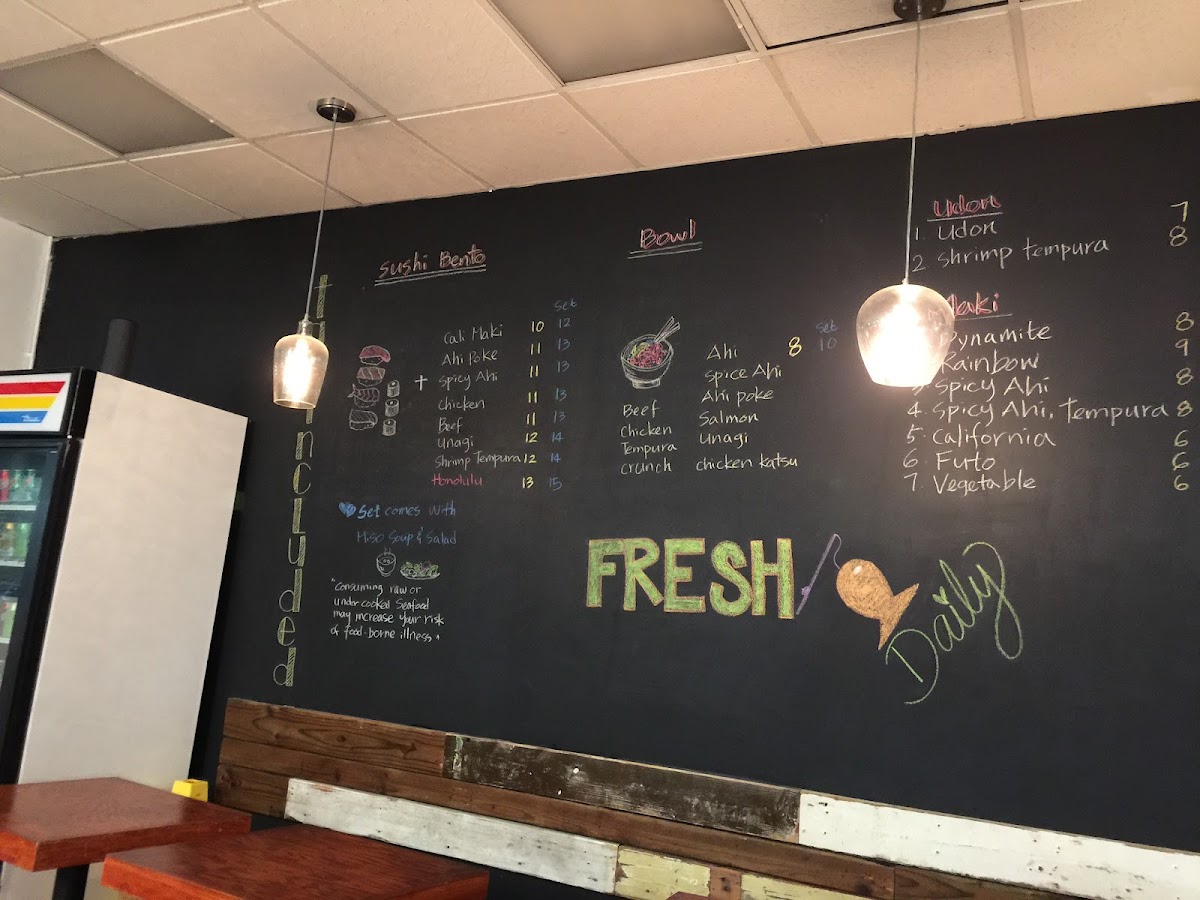 tax included
Sushi Bento
Set
Cali Maki 10 12
Ahi Poke 11 13
Spicy Ahi 11 13
Chicken 11 13
Beef 11 13
Unagi 12 14
Shrimp Tempura 12 14
Honolulu 13 15
Set comes with
Miso Soup & Salad
"consuming raw or
under cooked seafood
may increase your risk
of food-borne illness"
Bowl
Set
8 10
Ahi
Spice Ahi
Ahi poke
Beef Salmon
Chicken Unagi
Tempura
crunch chicken katsu
Udon
1. Udon 7
2. Shrimp tempura 8
Maki
Dynamite 8
Rainbow 9
3. Spicy Ahi 8
4. Spicy Ahi, Tempura 8
5. California 6
6. Futo 6
7. Vegetable 6
FRESH
Daily